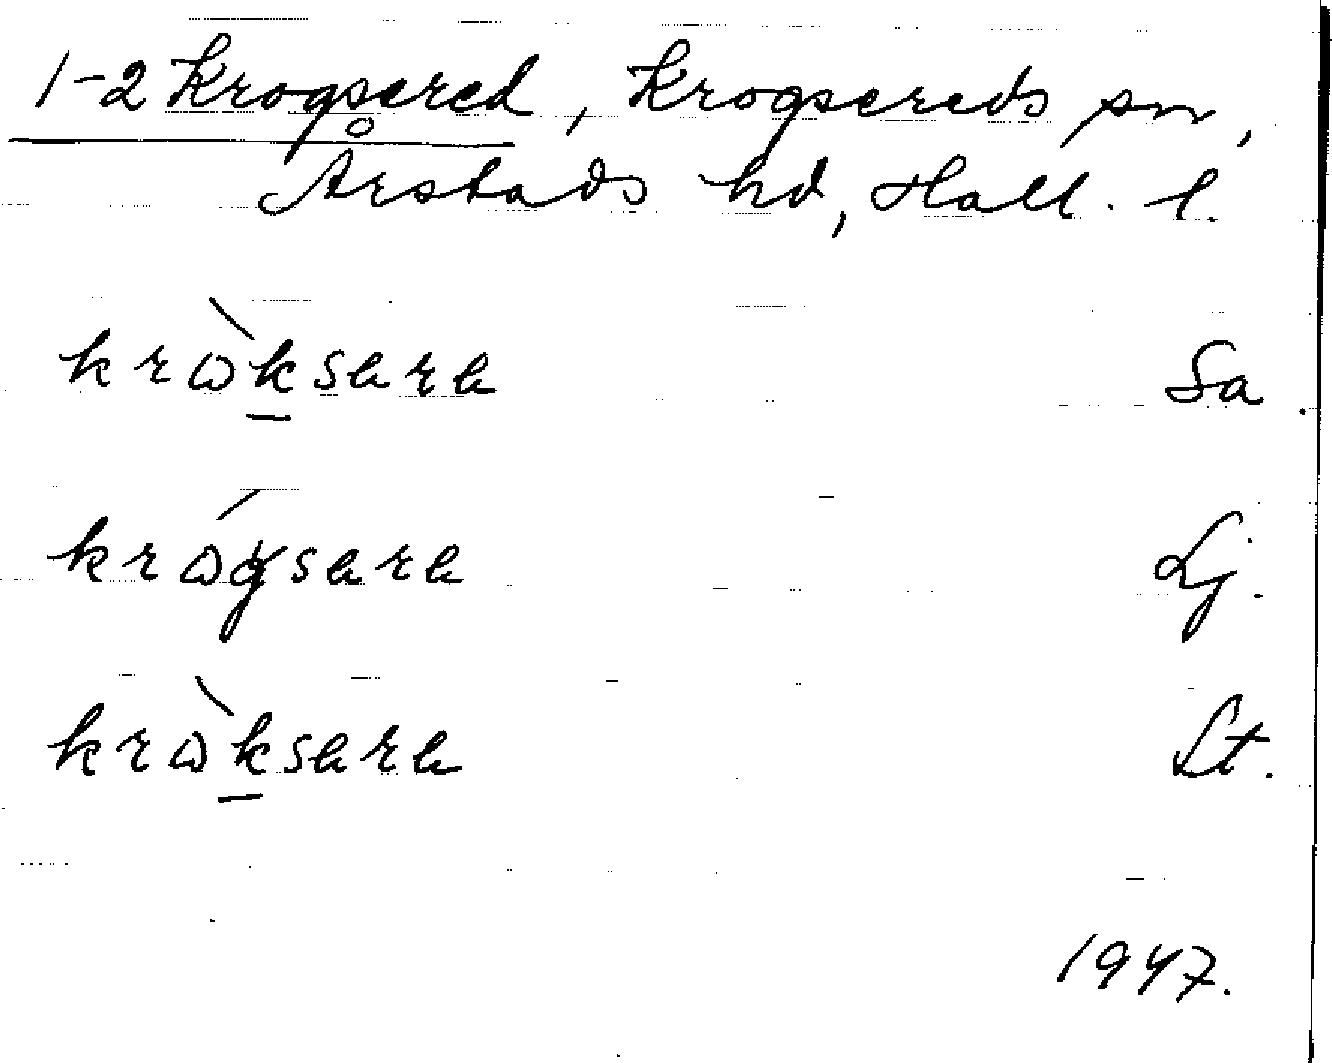 1-2 Krogsered, Krogsereds sn,
Årstads hd, Hall. l.
krὼksara Sa
krώgsara Lj.
krὼksara Lt.
1947.